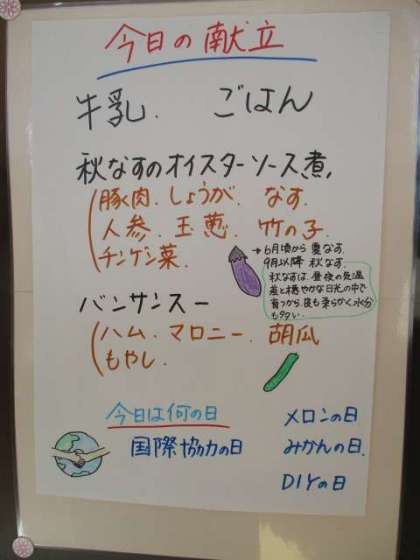 今日の献立
牛乳. ごはん
秋なすのオイスターソース煮,
豚肉. しょうが. なす.
人参. 玉葱. 竹の子.
チンゲン菜.
→6月頃から 夏なす.
9月以降 秋なす.
秋なすは、昼夜の気温
差と穏やかな日光の中で
育つから、皮も柔らかく水分
も多い.
バンサンスー
ハム. マロニー. 胡瓜
もやし.
今日は何の日
国際協力の日
メロンの日
みかんの日.
DIYの日